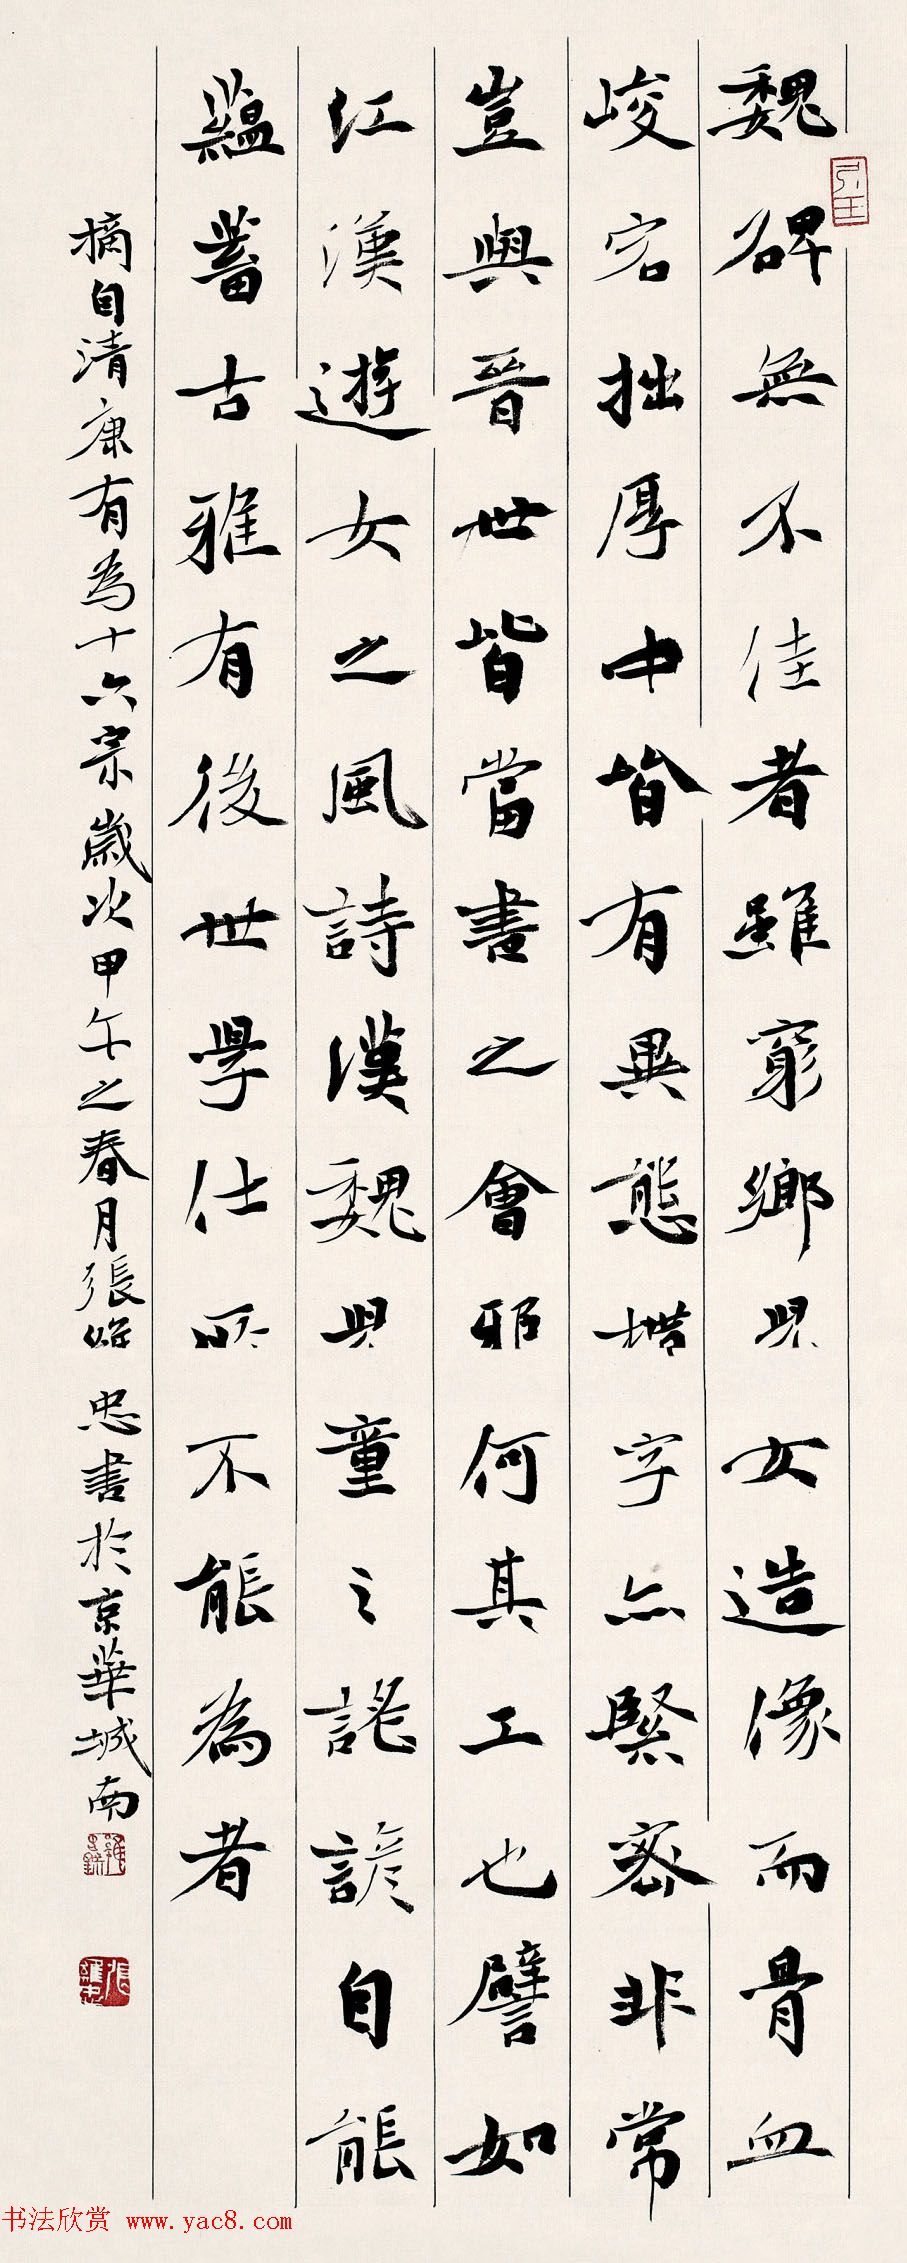 魏碑無不佳者雖窮鄉兒女造像而骨血
峻宕拙厚中皆有異態構字亦緊密非常
豈與晉世皆當書之會邪何其工也譬如
江漢遊女之風詩漢魏兒童之謠諺自能
蘊蓄古雅有後世學仕所不能為者
摘自清康有為十六宗歲次甲午之春月張維忠書於京華城南
书法欣赏 www.yac8.com